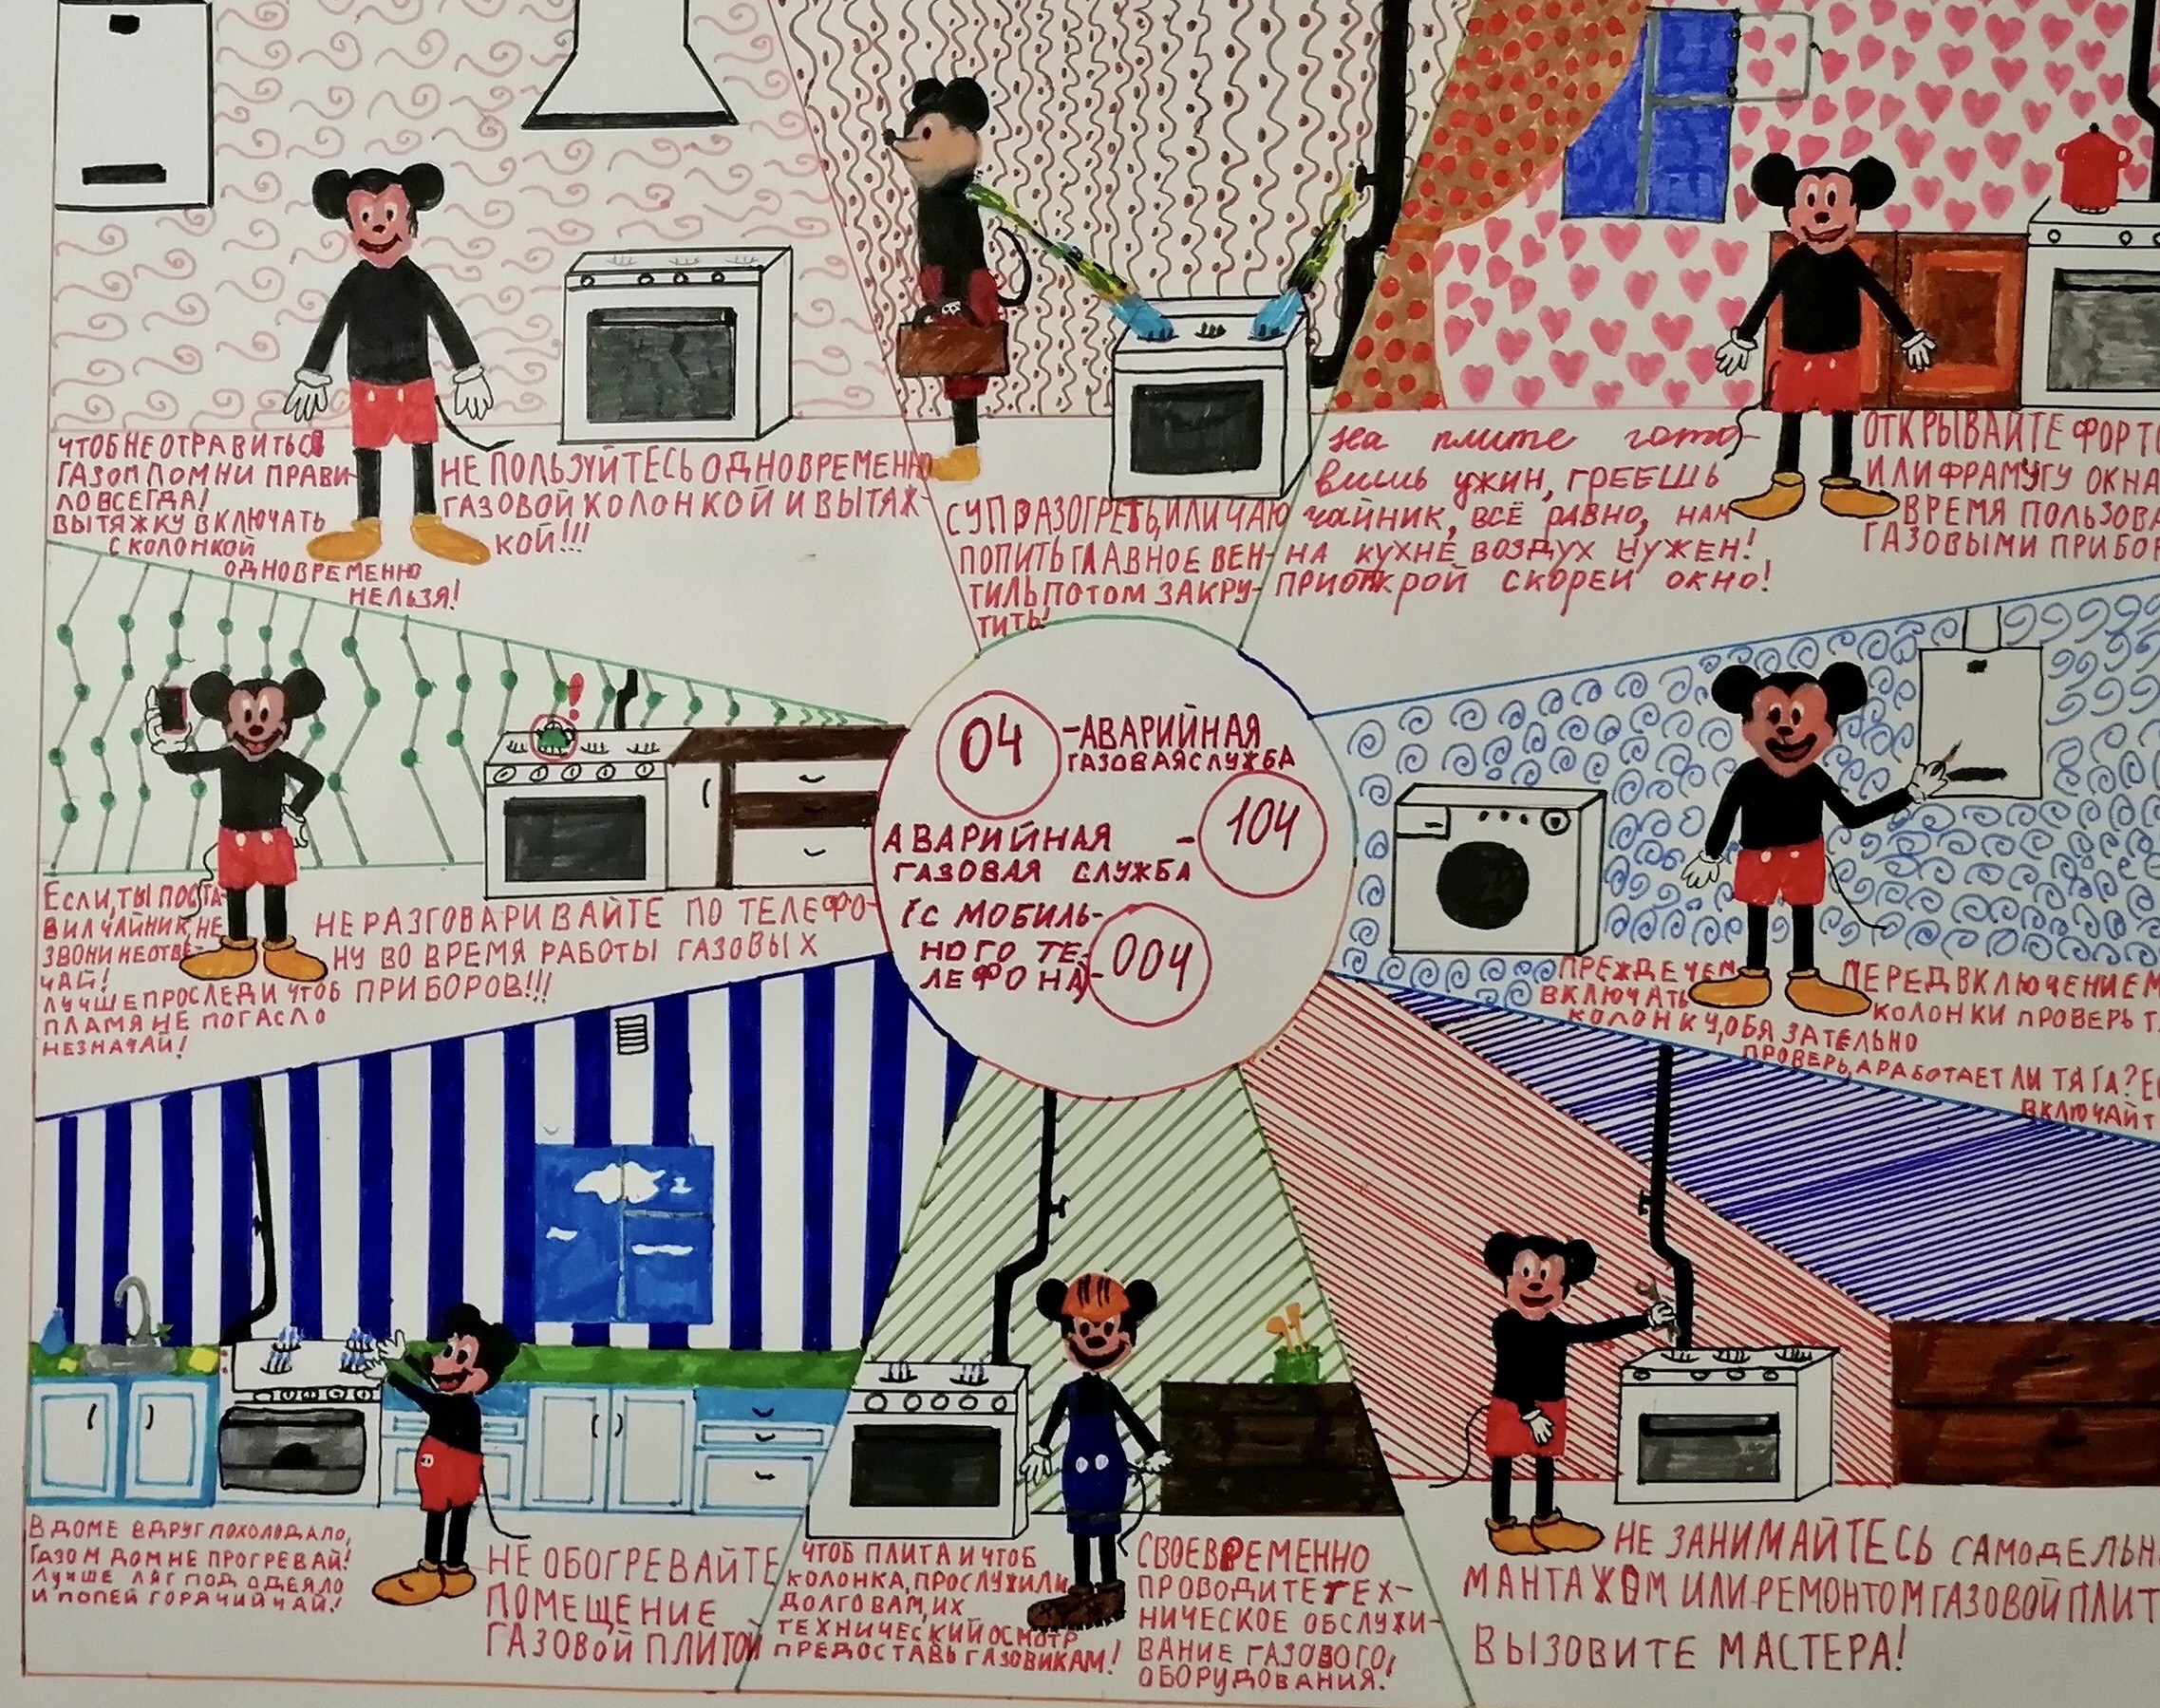 ЧТОБ НЕ ОТРАВИТЬСЯ
ГАЗОМ ПОМНИ ПРАВИ-
ЛО ВСЕГДА!
ВЫТЯЖКУ ВКЛЮЧАТЬ
С КОЛОНКОЙ
ОДНОВРЕМЕННО
НЕЛЬЗЯ!
НЕ ПОЛЬЗУЙТЕСЬ ОДНОВРЕМЕННО
ГАЗОВОЙ КОЛОНКОЙ И ВЫТЯЖ-
КОЙ!!!
СУП РАЗОГРЕТЬ, ИЛИ ЧАЮ
ПОПИТЬ ГЛАВНОЕ ВЕН-
ТИЛЬ ПОТОМ ЗАКРУ-
ТИТЬ!
на плите гото-
вишь ужин, ГРЕЕШЬ
чайник, ВСЁ РАВНО, НАМ
НА КУХНЕ ВОЗДУХ НУЖЕН!
ПРИОТКРОЙ СКОРЕЙ ОКНО!
ОТКРЫВАЙТЕ ФОРТО
ИЛИ ФРАМУГУ ОКНА
ВРЕМЯ ПОЛЬЗОВА
ГАЗОВЫМИ ПРИБОР
ЕСЛИ, ТЫ ПОСТА-
ВИЛ ЧАЙНИК, НЕ
ЗВОНИ НЕ ОТВЕ-
ЧАЙ!
ЛУЧШЕ ПРОСЛЕДИ ЧТОБ
ПЛАМЯ НЕ ПОГАСЛО
НЕЗНАЧАЙ!
НЕ РАЗГОВАРИВАЙТЕ ПО ТЕЛЕФО-
НУ ВО ВРЕМЯ РАБОТЫ ГАЗОВЫХ
ПРИБОРОВ!!!
04 - АВАРИЙНАЯ
ГАЗОВАЯ СЛУЖБА
АВАРИЙНАЯ - 104
ГАЗОВАЯ СЛУЖБА
(С МОБИЛЬ-
НОГО ТЕ-
ЛЕФОНА) - 004
ПРЕЖДЕ ЧЕМ
ВКЛЮЧАТЬ
КОЛОНКУ, ОБЯЗАТЕЛЬНО
ПРОВЕРЬ, А РАБОТАЕТ ЛИ ТЯГА?
ВКЛЮЧАЙТ
ПЕРЕД ВКЛЮЧЕНИЕМ
КОЛОНКИ ПРОВЕРЬ Т
В ДОМЕ ВДРУГ ПОХОЛОДАЛО,
ГАЗОМ ДОМ НЕ ПРОГРЕВАЙ!
ЛУЧШЕ ЛЯГ ПОД ОДЕЯЛО
И ПОПЕЙ ГОРЯЧИЙ ЧАЙ!
НЕ ОБОГРЕВАЙТЕ
ПОМЕЩЕНИЕ
ГАЗОВОЙ ПЛИТОЙ
ЧТОБ ПЛИТА И ЧТОБ
КОЛОНКА, ПРОСЛУЖИЛИ
ДОЛГО ВАМ, ИХ
ТЕХНИЧЕСКИЙ ОСМОТР
ПРЕДОСТАВЬ ГАЗОВИКАМ!
СВОЕВРЕМЕННО
ПРОВОДИТЕ ТЕХ-
НИЧЕСКОЕ ОБСЛУЖИ-
ВАНИЕ ГАЗОВОГО,
ОБОРУДОВАНИЯ.
НЕ ЗАНИМАЙТЕСЬ САМОДЕЛЬН
МАНТАЖОМ ИЛИ РЕМОНТОМ ГАЗОВОЙ ПЛИТ
ВЫЗОВИТЕ МАСТЕРА!